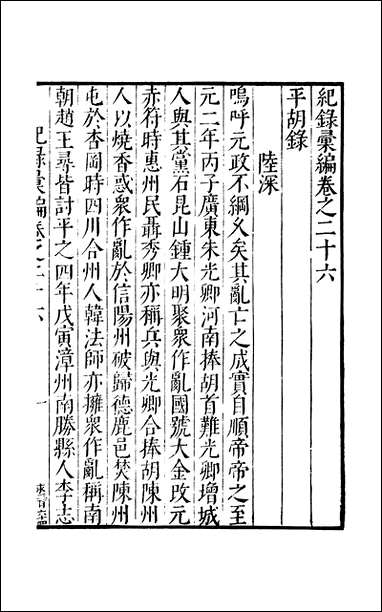 紀錄彙編卷之二十六
平胡錄
陸深
嗚呼元政不綱久矣其亂亡之成實自順帝帝之至
元二年丙子廣東朱光卿河南捧胡首難光卿增城
人與其黨石昆山鍾大明聚衆作亂國號大金改元
赤符時惠州民聶秀卿亦稱兵與光卿合捧胡陳州
人以燒香惑衆作亂於信陽州破歸德鹿邑焚陳州
屯於杏岡時四川合州人韓法師亦擁衆作亂稱南
朝趙王尋皆討平之四年戊寅漳州南勝縣人李志
紀錄彙編卷之二十六
一